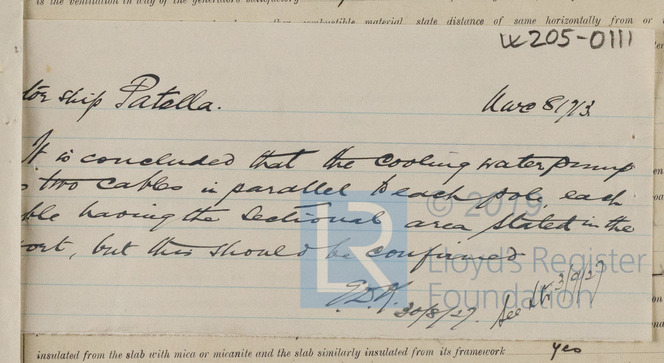 is the ventilation in way of the generators satisfactory
than combustible material, state distance of same horizontally from or
W205-0111
tor ship Patella.
It is concluded that the cooling water pump
two cables in parallel to each pole, each
ble having the sectional area stated in the
ort, but this should be confirmed
© 2019
LR
Lloyd's Register
Foundation
30/8/27. See
3/9/27
insulated from the slab with mica or micanite and the slab similarly insulated from its framework yes